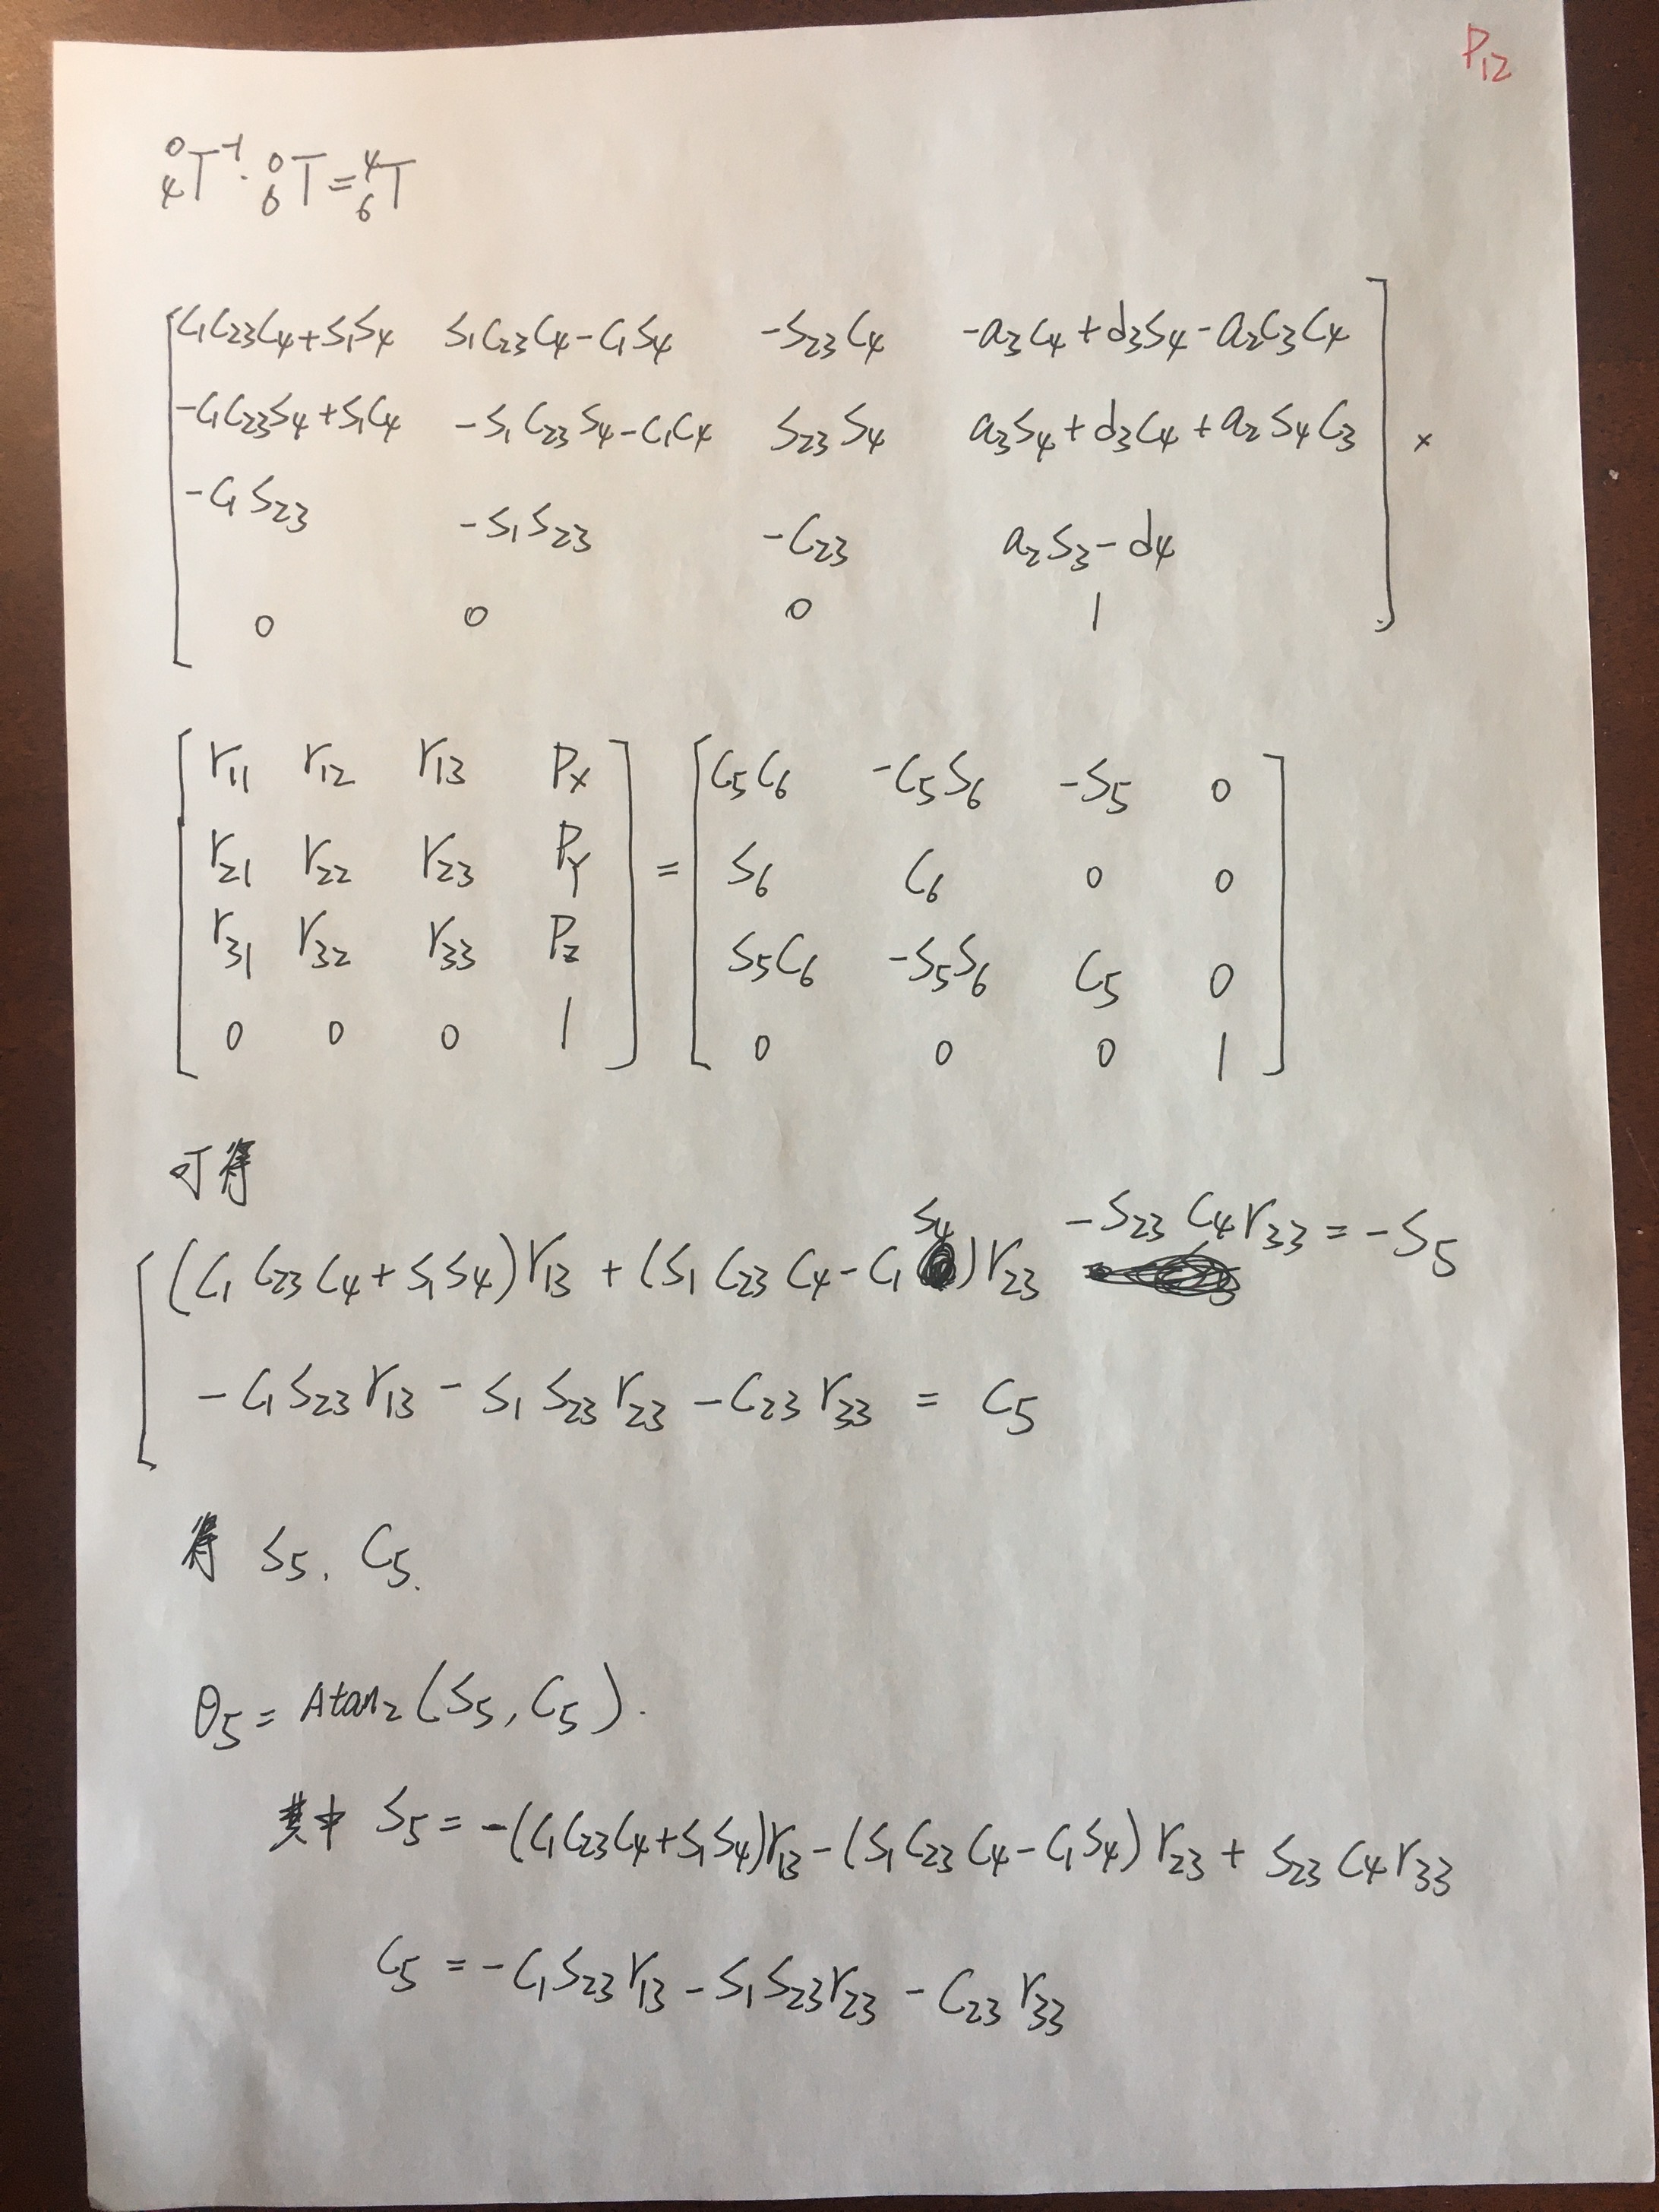 P₁₂
⁰₄T⁻¹ · ⁰₆T = ⁴₆T
[ C₁C₂₃C₄+S₁S₄  S₁C₂₃C₄-C₁S₄  -S₂₃C₄  -a₃C₄+d₃S₄-a₂C₃C₄
-C₁C₂₃S₄+S₁C₄  -S₁C₂₃S₄-C₁C₄  S₂₃S₄  a₃S₄+d₃C₄+a₂S₄C₃ ] ×
-C₁S₂₃  -S₁S₂₃  -C₂₃  a₂S₃-d₄
0  0  0  1
[ r₁₁ r₁₂ r₁₃ Px ] [ C₅C₆  -C₅S₆  -S₅  0 ]
r₂₁ r₂₂ r₂₃ PY = S₆  C₆  0  0
r₃₁ r₃₂ r₃₃ Pz  S₅C₆  -S₅S₆  C₅  0
0 0 0 1  0  0  0  1
可得
(C₁C₂₃C₄+S₁S₄)r₁₃ + (S₁C₂₃C₄-C₁S₄)r₂₃ -S₂₃C₄r₃₃ = -S₅
-C₁S₂₃r₁₃ - S₁S₂₃r₂₃ - C₂₃r₃₃ = C₅
得 S₅、C₅.
θ₅ = Atan₂(S₅, C₅).
其中 S₅ = -(C₁C₂₃C₄+S₁S₄)r₁₃ - (S₁C₂₃C₄-C₁S₄)r₂₃ + S₂₃C₄r₃₃
C₅ = -C₁S₂₃r₁₃ - S₁S₂₃r₂₃ - C₂₃r₃₃